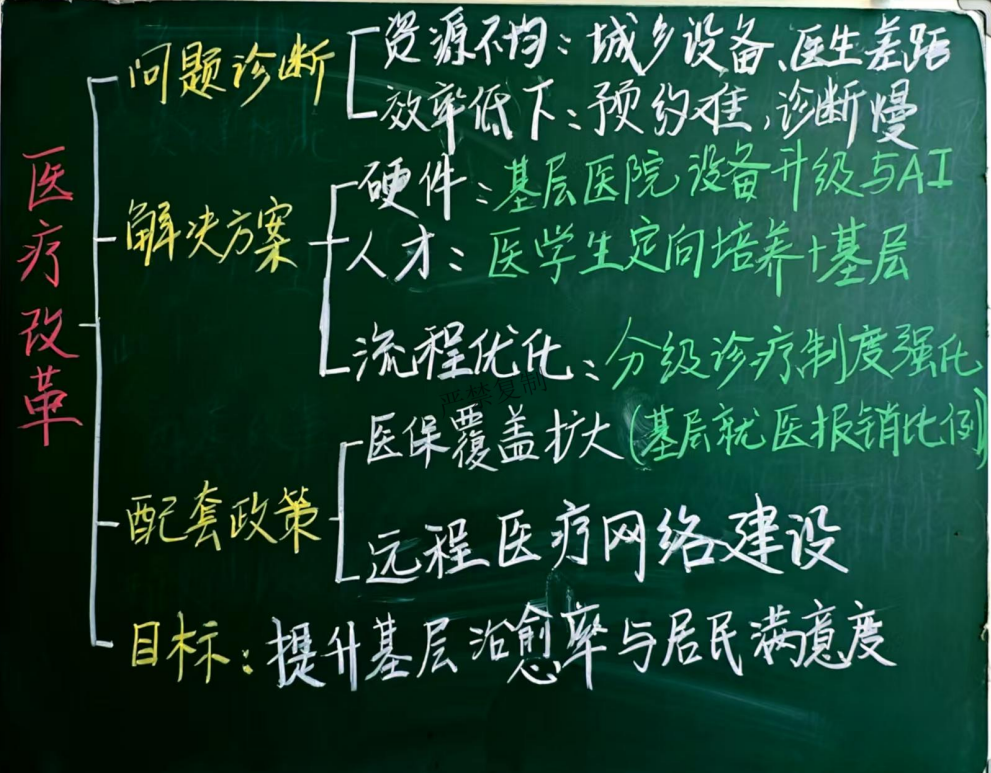 医疗改革
问题诊断
资源不均：城乡设备、医生差距
效率低下：预约难，诊断慢
解决方案
硬件：基层医院设备升级与AI
人才：医学生定向培养+基层
流程优化：分级诊疗制度强化
严禁复制
配套政策
医保覆盖扩大(基层就医报销比例)
远程医疗网络建设
目标：提升基层治愈率与居民满意度